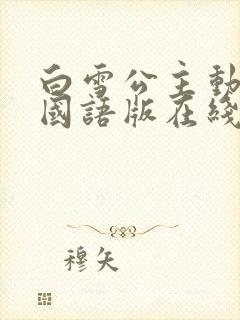 白雪公主動
國語版在綫
穆矢